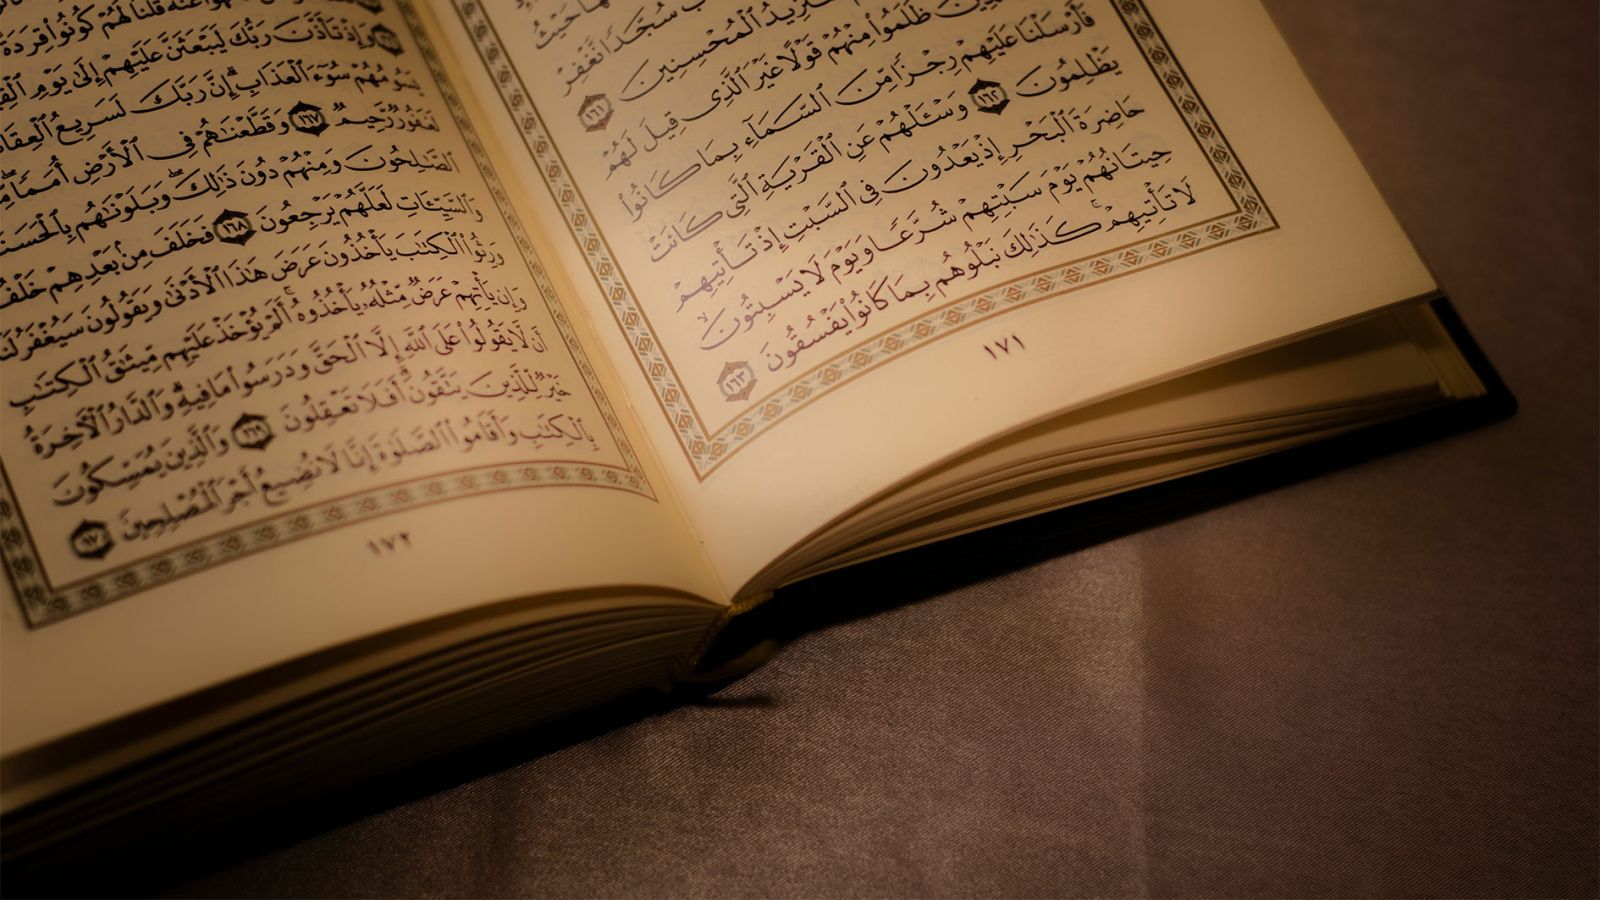 حَيْثُ
سُجَّدًا نَّغْفِرْ
ٱلْمُحْسِنِينَ ١٦١
ظَلَمُوا۟ مِنْهُمْ قَوْلًا غَيْرَ ٱلَّذِى قِيلَ لَهُمْ
فَأَرْسَلْنَا عَلَيْهِمْ رِجْزًا مِّنَ ٱلسَّمَآءِ بِمَا كَانُوا۟
يَظْلِمُونَ ١٦٢ وَسْـَٔلْهُمْ عَنِ ٱلْقَرْيَةِ ٱلَّتِى كَانَتْ
حَاضِرَةَ ٱلْبَحْرِ إِذْ يَعْدُونَ فِى ٱلسَّبْتِ إِذْ تَأْتِيهِمْ
حِيتَانُهُمْ يَوْمَ سَبْتِهِمْ شُرَّعًا وَيَوْمَ لَا يَسْبِتُونَ
لَا تَأْتِيهِمْ ۚ كَذَٰلِكَ نَبْلُوهُم بِمَا كَانُوا۟ يَفْسُقُونَ ١٦٣
١٧١
عَنْهُ قُلْنَا لَهُمْ كُونُوا۟ قِرَدَةً
وَإِذْ تَأَذَّنَ رَبُّكَ لَيَبْعَثَنَّ عَلَيْهِمْ إِلَىٰ يَوْمِ
يَسُومُهُمْ سُوٓءَ ٱلْعَذَابِ ۗ إِنَّ رَبَّكَ لَسَرِيعُ
لَغَفُورٌ رَّحِيمٌ ١٦٧ وَقَطَّعْنَٰهُمْ فِى ٱلْأَرْضِ أُمَمًا
ٱلصَّٰلِحُونَ وَمِنْهُمْ دُونَ ذَٰلِكَ ۖ وَبَلَوْنَٰهُم
وَٱلسَّيِّـَٔاتِ لَعَلَّهُمْ يَرْجِعُونَ ١٦٨ فَخَلَفَ مِنۢ بَعْدِهِمْ
وَرِثُوا۟ ٱلْكِتَٰبَ يَأْخُذُونَ عَرَضَ هَٰذَا ٱلْأَدْنَىٰ وَيَقُولُونَ سَيُغْفَرُ لَنَا
وَإِن يَأْتِهِمْ عَرَضٌ مِّثْلُهُۥ يَأْخُذُوهُ ۚ أَلَمْ يُؤْخَذْ عَلَيْهِم مِّيثَٰقُ ٱلْكِتَٰبِ
أَن لَّا يَقُولُوا۟ عَلَى ٱللَّهِ إِلَّا ٱلْحَقَّ وَدَرَسُوا۟ مَا فِيهِ ۗ وَٱلدَّارُ ٱلْءَاخِرَةُ
خَيْرٌ لِّلَّذِينَ يَتَّقُونَ ۗ أَفَلَا تَعْقِلُونَ ١٦٩ وَٱلَّذِينَ يُمَسِّكُونَ
بِٱلْكِتَٰبِ وَأَقَامُوا۟ ٱلصَّلَوٰةَ إِنَّا لَا نُضِيعُ أَجْرَ ٱلْمُصْلِحِينَ ١٧٠
١٧٢